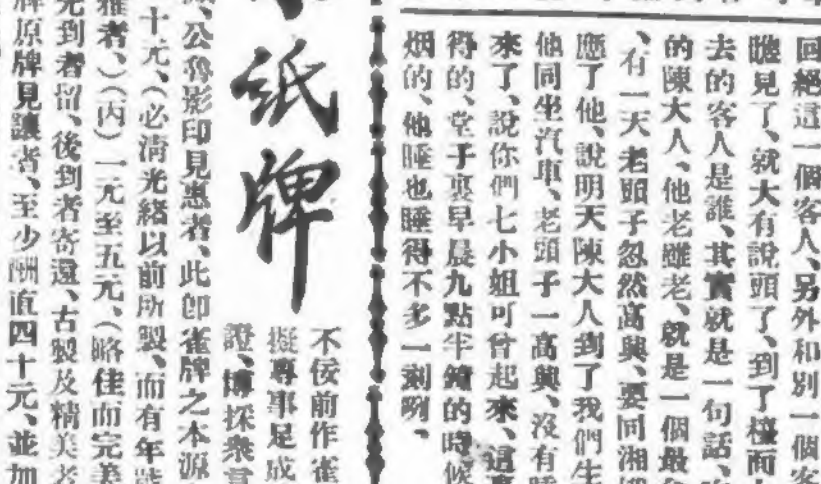 回絕這一個客人、另外和別一個客
聽見了、就大有說頭了、到了檯面
去的客人是誰、其實就是一句話、
的陳大人、他老雖老、就是一個最
、有一天老頭子忽然高興、要同湘
應了他、說明天陳大人到了我們生
他同坐汽車、老頭子一高興、沒有
來了、說你們七小姐可曾起來、這
得的、堂子裏早晨九點半鐘的時候
烟的、他睡也睡得不多一刻咧、
紙牌
不佞前作雀
擬專事足成
證、博探衆言
、公魯影印見惠者、此卽雀牌之本源
十元、(必淸光緖以前所製、而有年
雅者、)(丙)一元至五元、(略佳而完美
先到者留、後到者寄還、古製及精美者
牌原牌見讓者、至少酬直四十元、並加